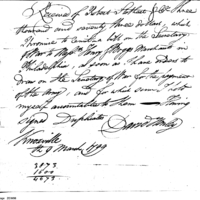 Received of Robert & Co Three
thousand and seventy three dollars, which
I promise to on the Secretary
of War to Mess Merchants in
Philadelphia, as soon as I have orders to
draw on the Secretary of War for the payment
of the army, and for which sum I hold
myself accountable to them — having
signed Duplicates
David Henley
Knoxville
the 9 March 1799
3073
1600
4673